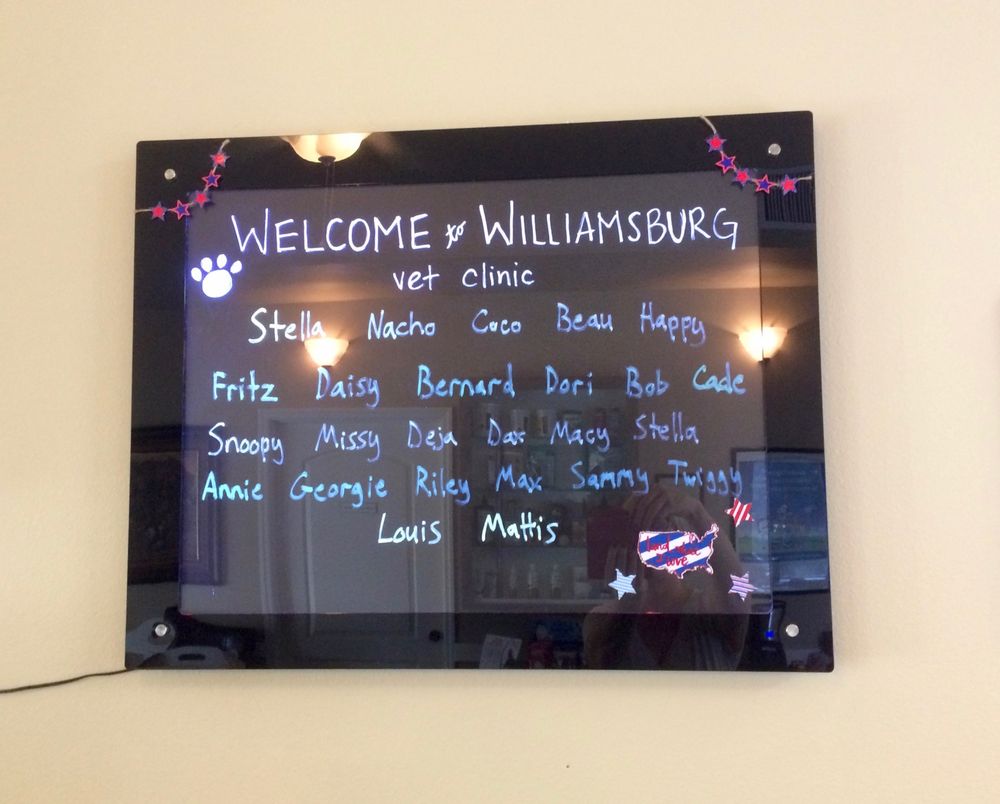 WELCOME to WILLIAMSBURG
vet clinic
Stella Nacho Coco Beau Happy
Fritz Daisy Bernard Dori Bob Cade
Snoopy Missy Deja Dax Macy Stella
Annie Georgie Riley Max Sammy Twiggy
Louis Mattis
Land that
I love